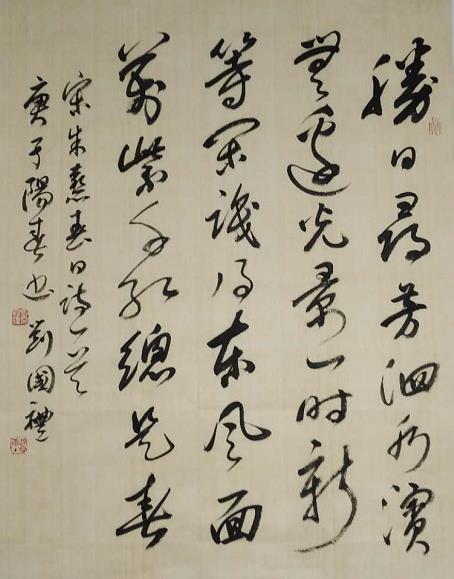 勝日尋芳泗水濱
無邊光景一时新
等閑識得東風面
萬紫千紅總是春
宋朱熹春日詩一首
庚子陽春書劉國禮